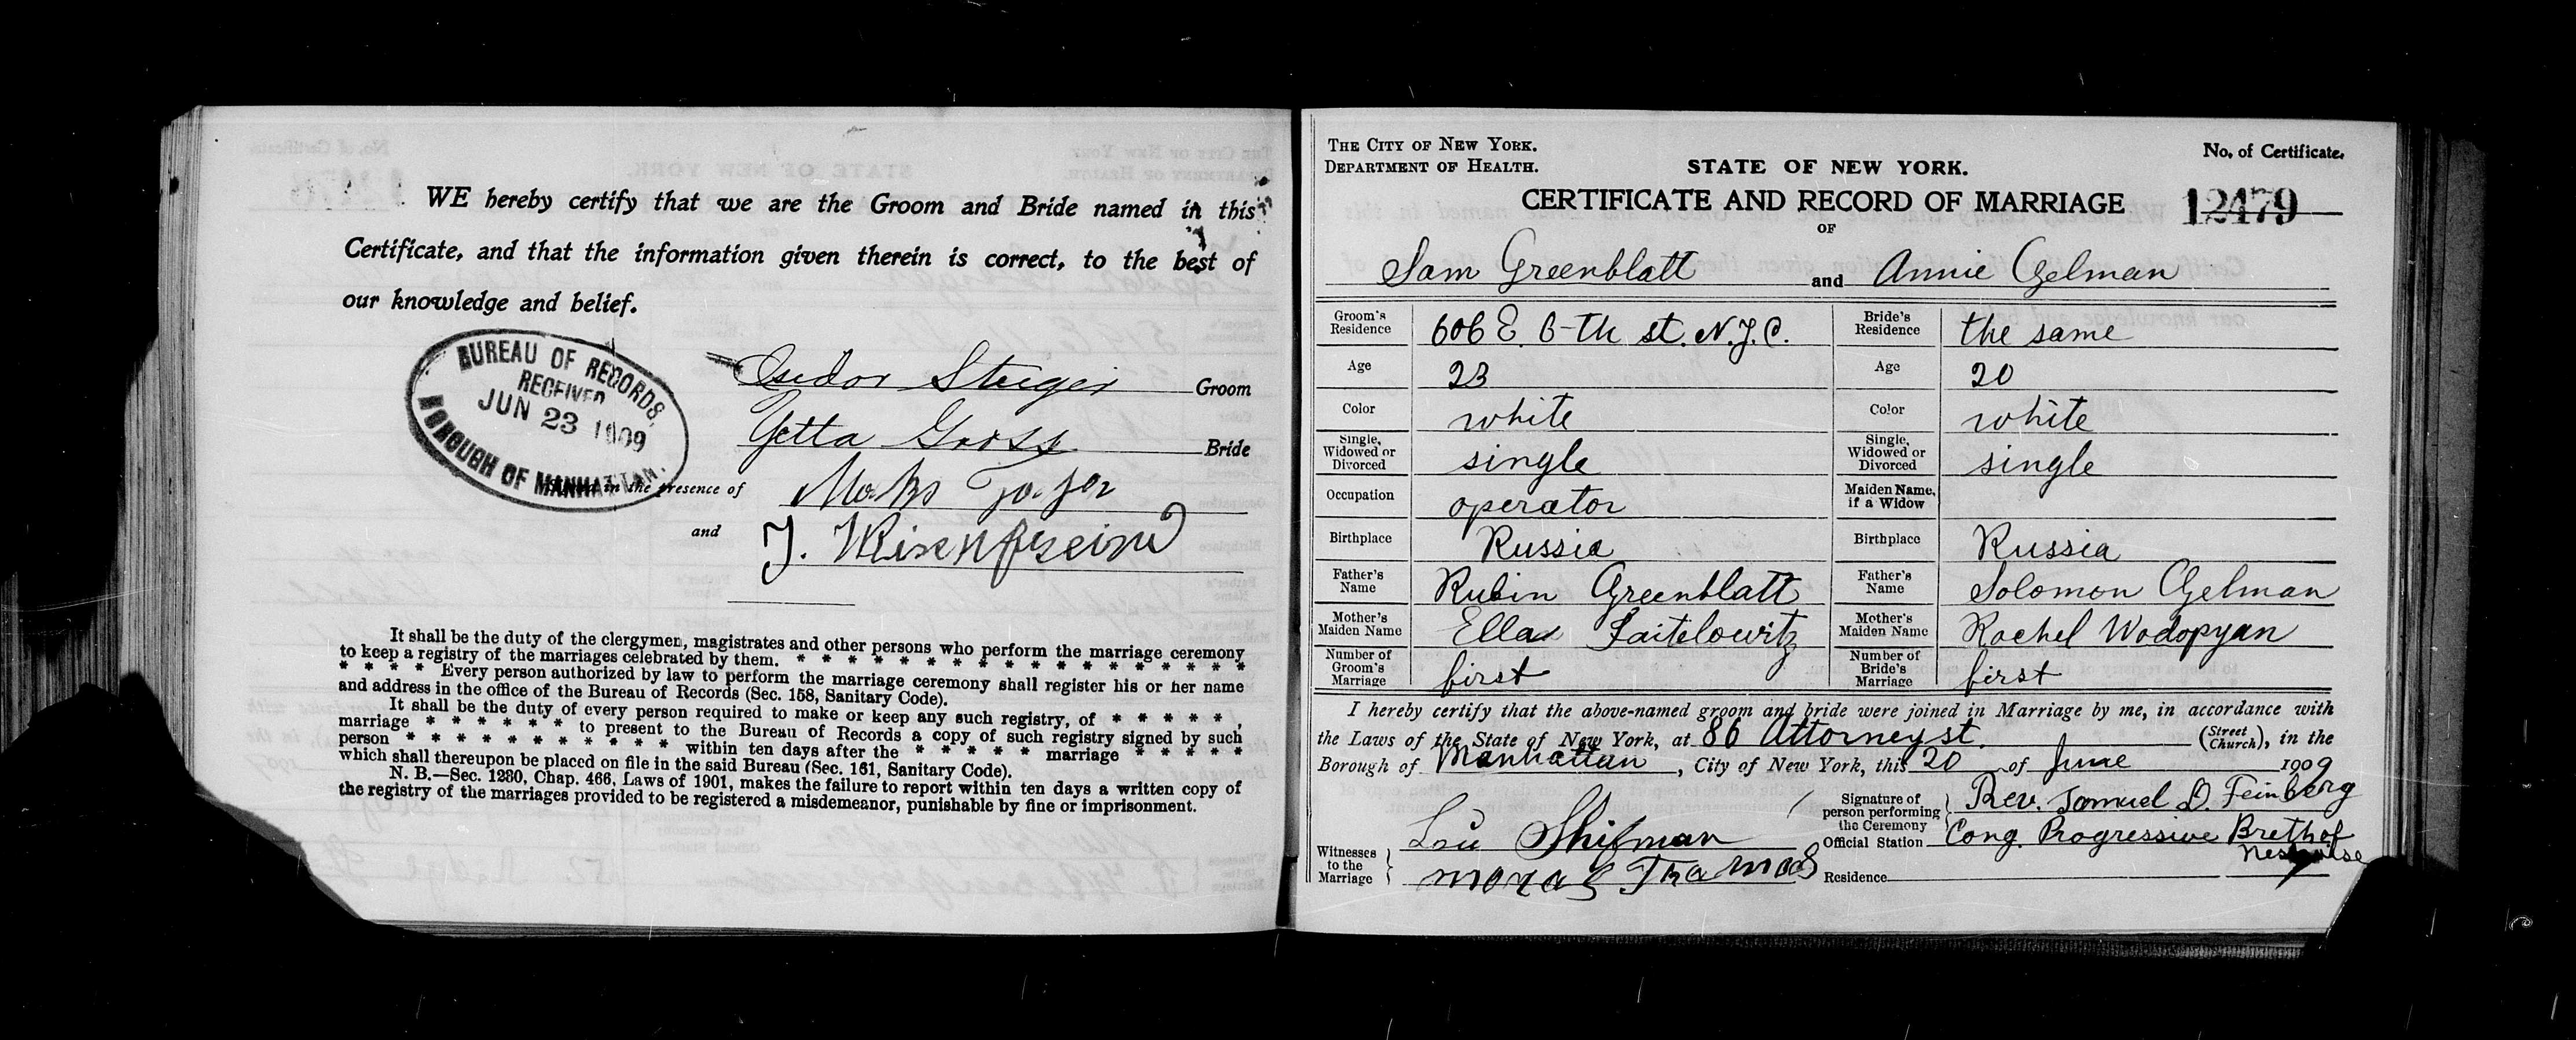 WE hereby certify that we are the Groom and Bride named in this
Certificate, and that the information given therein is correct, to the best of
our knowledge and belief.
BUREAU OF RECORDS,
RECEIVED
JUN 23 1909
BOROUGH OF MANHATTAN.
Isidor Steiger Groom
Yetta Gross Bride
in the presence of
and J.
It shall be the duty of the clergymen, magistrates and other persons who perform the marriage ceremony
to keep a registry of the marriages celebrated by them. * * * * * * * * * * * * * * * * * *
* * * * Every person authorized by law to perform the marriage ceremony shall register his or her name
and address in the office of the Bureau of Records (Sec. 158, Sanitary Code).
It shall be the duty of every person required to make or keep any such registry, of * * * * * ,
marriage * * * * * * to present to the Bureau of Records a copy of such registry signed by such
person * * * * * * * * * * * within ten days after the * * * * * marriage * * * * *
which shall thereupon be placed on file in the said Bureau (Sec. 161, Sanitary Code).
N. B.—Sec. 1280, Chap. 466, Laws of 1901, makes the failure to report within ten days a written copy of
the registry of the marriages provided to be registered a misdemeanor, punishable by fine or imprisonment.
THE CITY OF NEW YORK.
DEPARTMENT OF HEALTH.
STATE OF NEW YORK.
No. of Certificate.
CERTIFICATE AND RECORD OF MARRIAGE
12479
OF
Sam Greenblatt and Annie Gelman
Groom's Residence 606 E. 6-th st. N.Y.C. Bride's Residence the same
Age 23 Age 20
Color white Color white
Single, Widowed or Divorced single Single, Widowed or Divorced single
Occupation operator Maiden Name, if a Widow
Birthplace Russia Birthplace Russia
Father's Name Rubin Greenblatt Father's Name Solomon Gelman
Mother's Maiden Name Ella Faitelowitz Mother's Maiden Name Rachel Wodopyan
Number of Groom's Marriage first Number of Bride's Marriage first
I hereby certify that the above-named groom and bride were joined in Marriage by me, in accordance with
the Laws of the State of New York, at 86 Attorney st. (Street Church), in the
Borough of Manhattan, City of New York, this 20 of June 1909
Signature of person performing the Ceremony Rev. Samuel D. Feinberg
Official Station Cong. Progressive Breth of
Witnesses to the Marriage Shifman
Residence